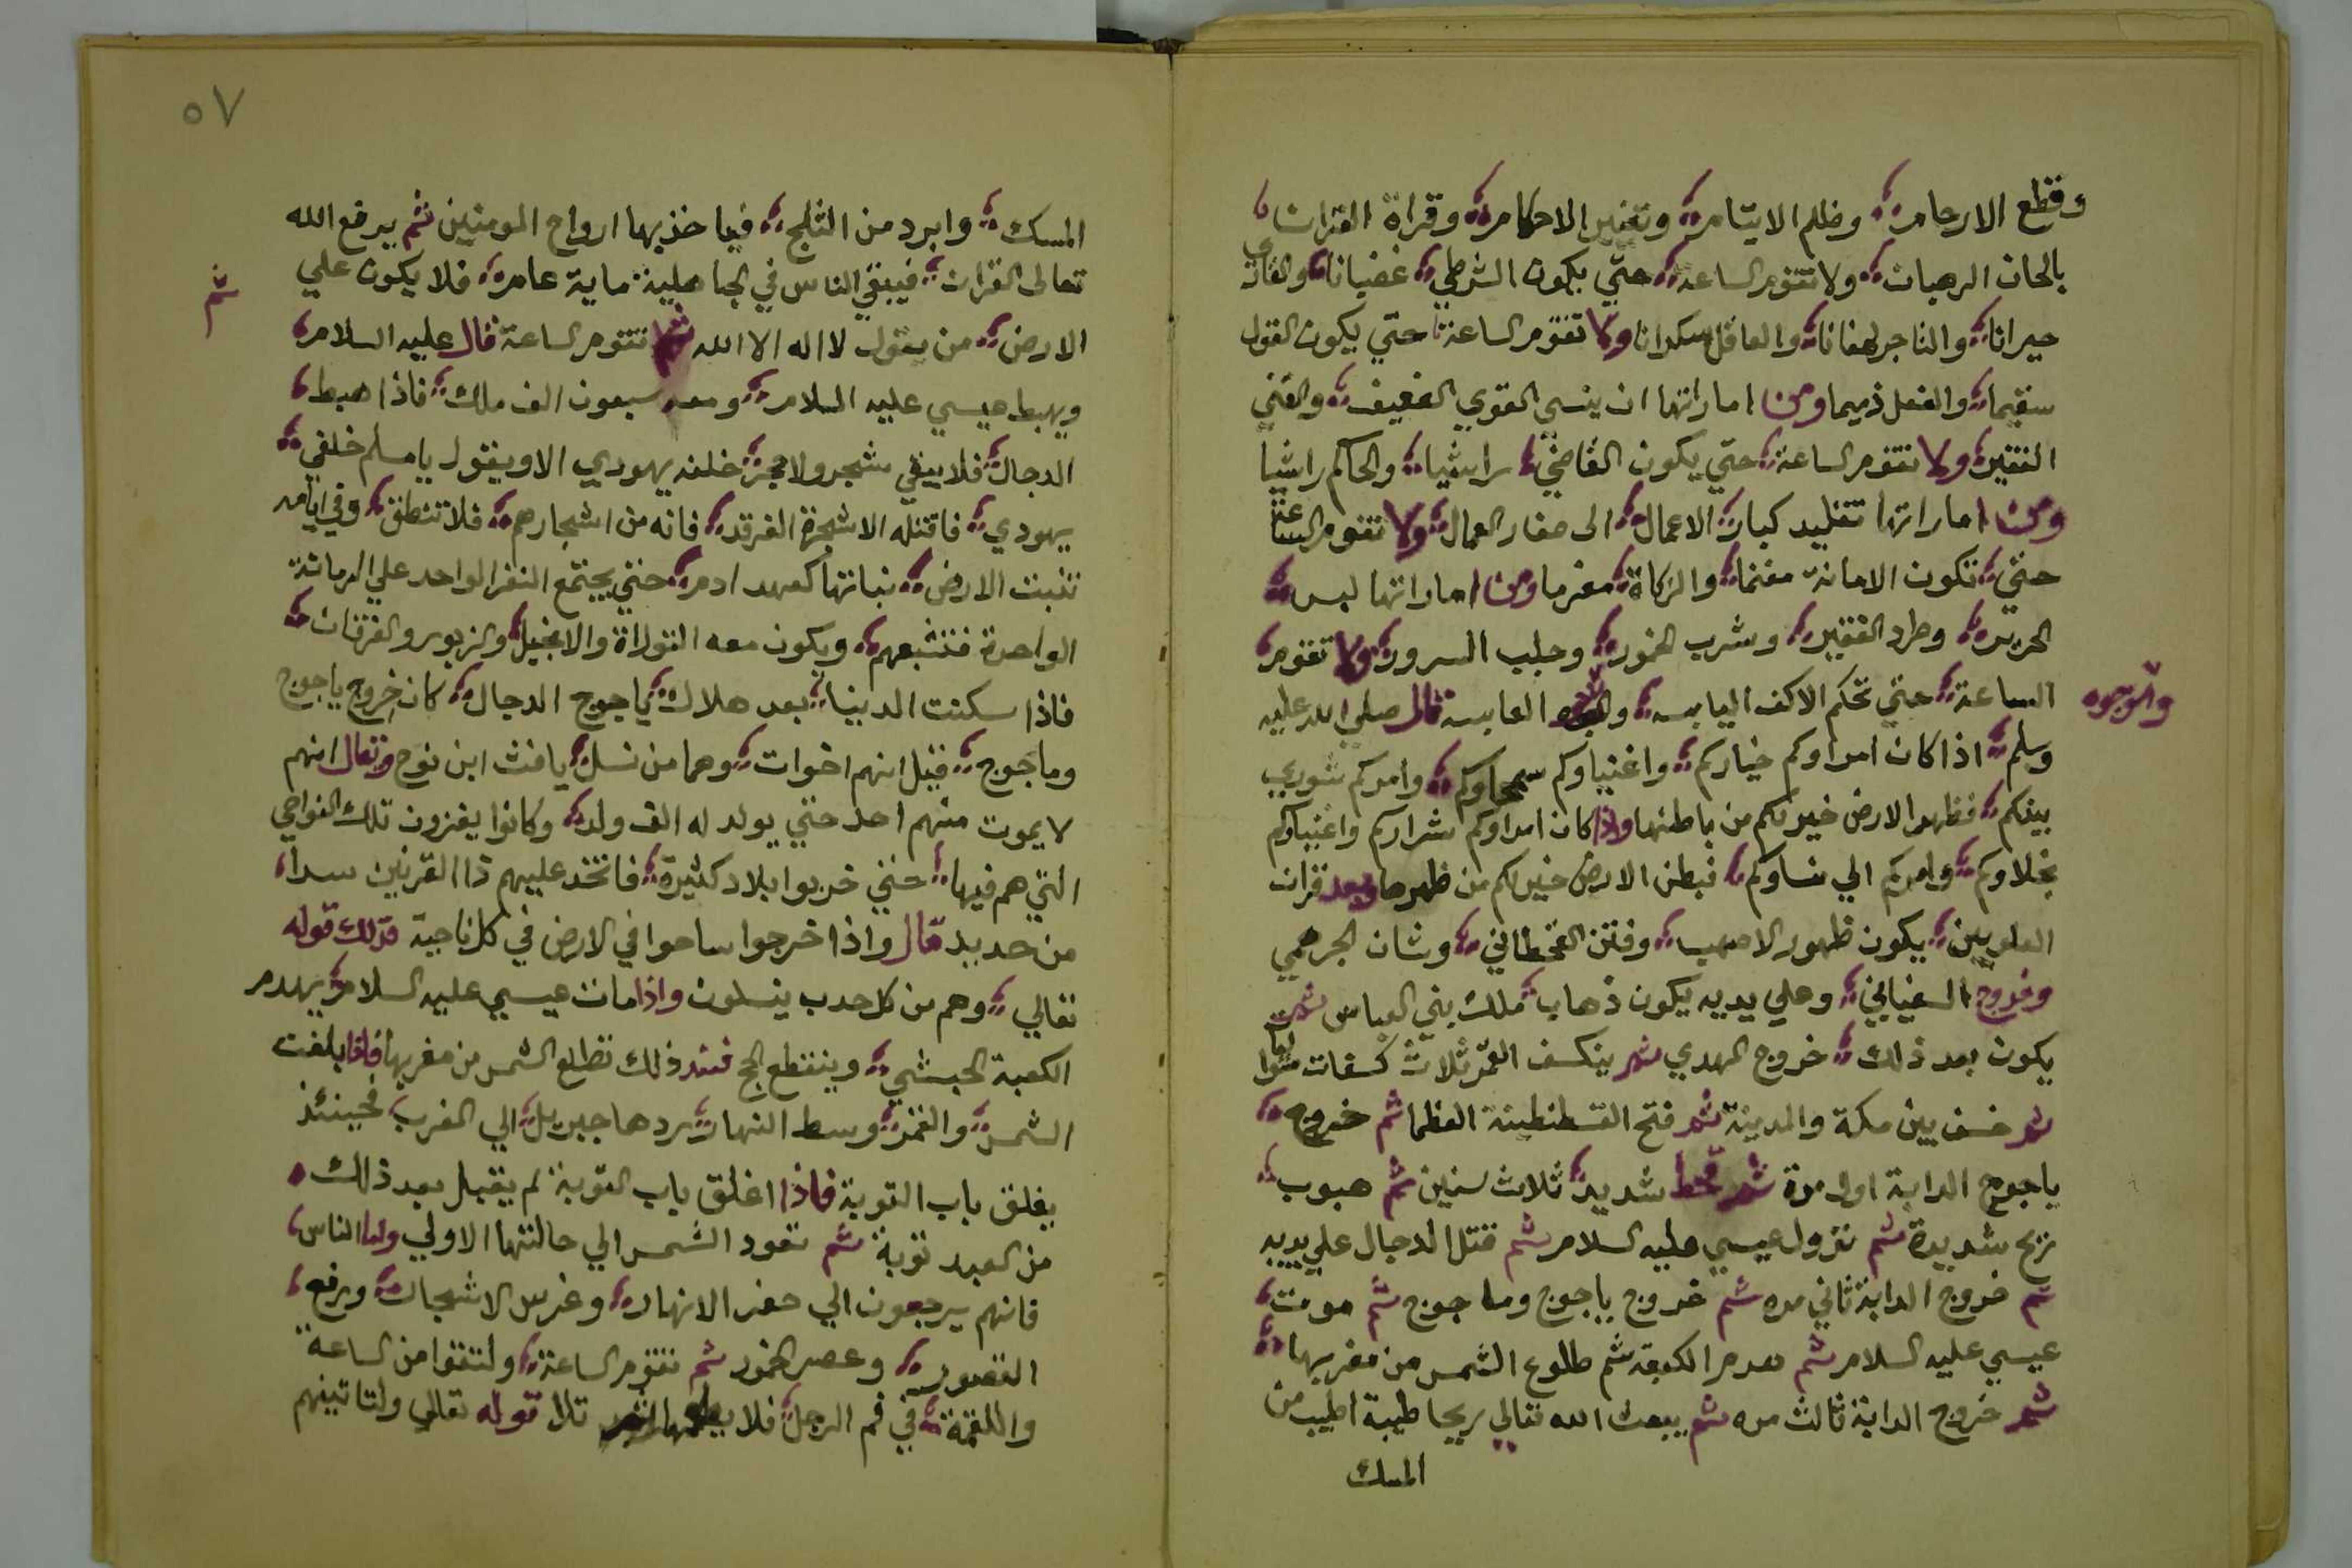 وقطع الارحام، وظلم الايتام، وتغير الاحكام، وقراة القران،
بالحان الرهبان، ولا تقوم الساعة، حتي يكون الشرطي، غضبانا،
حيرانا، والتاجر لهفانا، والعاقل سكرانا ولا تقوم الساعة، حتي يكون القول
سقيما، والفعل ذميما ومن اماراتها ان ينسي القوي الضعيف، والغني
الفقير، ولا تقوم الساعة، حتي يكون القاضي، راشيا، والحاكم راشيا
ومن اماراتها تقليد كبار، الاعمال، الى صغار العمال، ولا تقوم الساعة
حتي، تكون الامانة مغنما، والزكاة، مغرما ومن اماراتها لبس،
الحرير، وطرد الفقير، وشرب الخمور، وجلب السرور، ولا تقوم،
الساعة، حتي تحكم الاكف اليابسه، العابسه قال صلي الله عليه
والوجوه
وسلم، اذا كان امراوكم خياركم، واغنياوكم سمحاوكم، وامركم شوري
بينكم، فظهر الارض خير لكم من باطنها واذا كان امراوكم شراركم واغنياوكم
بخلاوكم، وامركم الي نساوكم، فبطن الارض خير لكم من ظهرها وبعد قران
العلويين، يكون ظهور الاصهب، وفتن القحطاني، وشان الجرهمي
وخروج السفياني، وعلي يديه يكون ذهاب، ملك بني العباس ثم
يكون بعد ذلك، خروج المهدي ثم ينكسف القمر ثلاث كسفات
ثم خسف بين مكة والمدينة ثم فتح القسطنطينة العظما ثم خروج،
ياجوج الدابة اول مرة ثم قحط شديد، ثلاث سنين ثم هبوب،
ريح شديدة ثم نزول عيسي عليه السلام ثم قتل الدجال علي يديه
ثم خروج الدابة ثاني مره ثم خروج ياجوج وماجوج ثم موت،
عيسي عليه السلام ثم هدم الكعبة ثم طلوع الشمس من مغربها،
ثم خروج الدابة ثالث مره ثم يبعث الله تعالي ريحا طيبة اطيب من
المسك
٥٧
المسك، وابرد من الثلج، فياخذ بها ارواح المومنين ثم يرفع الله
تعالى القران، فيبقي الناس في الجاهلية، ماية عام، فلا يكون علي
ثم
الارض، من يقول لا اله الا الله ثم تقوم الساعة قال عليه السلام،
ويهبط عيسي عليه السلام، ومعه سبعون الف ملك، فاذا هبط،
الدجال، فلا يبقي شجر ولا حجر، خلفه يهودي الا ويقول يا مسلم خلفي،
يهودي، فاقتله الا شجرة الغرقد، فانه من اشجارهم، فلا تنطق، وفي ايامه
تنبت الارض، نباتها كعهد ادم، حتي يجتمع النفر الواحد علي الرمانة
الواحدة فتشبعهم، ويكون معه التوراة والانجيل، والزبور والفرقان،
فاذا سكنت الدنيا، بعد هلاك، ياجوج الدجال، كان خروج ياجوج
وماجوج، قيل انهم اخوات، وهما من نسل، يافث ابن نوح ويقال انهم
لا يموت منهم احد حتي يولد له الف ولد، وكانوا يغزون تلك النواحي
التي هم فيها، حتي خربوا بلاد كثيرة، فاتخذ عليهم ذا القرنين سدا،
من حديد قال واذا خرجوا ساحوا في الارض في كل ناحية فذلك قوله
تعالي، وهم من كل حدب ينسلون واذا مات عيسي عليه السلام، يهدم
الكعبة الحبشي، وينقطع الحج فعند ذلك تطلع الشمس من مغربها فاذا بلغت
الشمس، والقمر، وسط النهار، ردها جبريل، الي المغرب، فحينئذ
يغلق باب التوبة فاذا اغلق باب التوبة، لم يقبل بعد ذلك،
من العبد توبة ثم تعود الشمس الي حالتها الاولي واما الناس،
فانهم يرجعون الي حفر الانهار، وغرس الاشجار، ورفع،
القصور، وعصر الخمور ثم تقوم الساعة، ولتقوا من الساعة
واللقمة، في فم الرجل، فلا يطعمها ثم تلا قوله تعالي ولتاتينهم